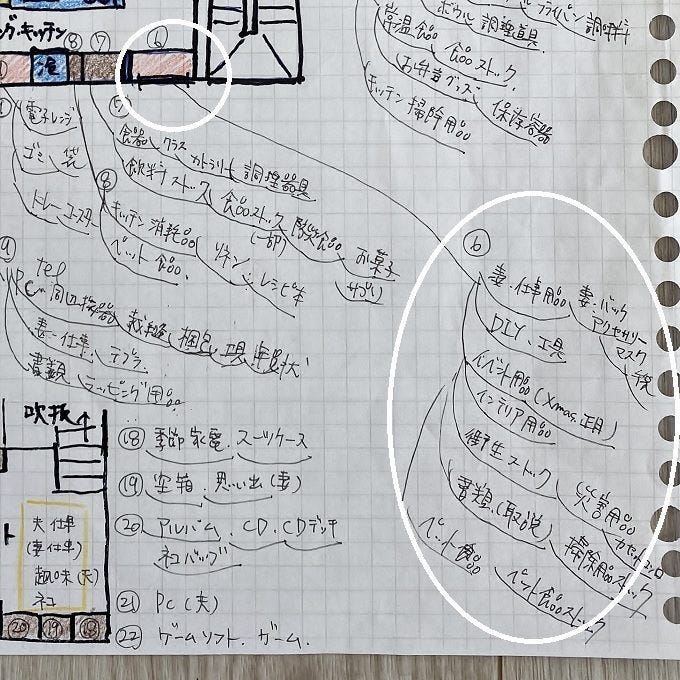 ボウル 調理道具 フライパン 調味料
常温食品 食品ストック
お弁当グッズ 保存容器
キッチン掃除用品
ング・キッチン
⑧ ⑦ ⑥
電子レンジ
ゴミ 袋
トレー コースター
⑤
食器 グラス カトラリー 調理器具
飲料ストック 食品ストック(一部) 防災食品 お菓子
サプリ
⑧
キッチン消耗品 リネン レシピ本
ペット食品
⑨
tel
PC 周辺機器 裁縫 梱包 工具 年賀状
妻・仕事 テプラ
書類 ラッピング用品
⑥
妻・仕事用品 妻・バック
アクセサリー
マスク
DIY、工具
イベント用品(Xmas、正月)
インテリア用品
衛生ストック 災害用品
カセットコンロ
書類(取説) 掃除用品ストック
ペット食品 ペット食品ストック
吹抜
⑱ 季節家電、スーツケース
⑲ 空箱、思い出(妻)
⑳ アルバム、CD、CDデッキ
ネコバッグ
㉑ PC(夫)
㉒ ゲームソフト、ゲーム、
夫仕事
(妻仕事)
趣味(夫)
ネコ
⑳ ⑲ ⑱